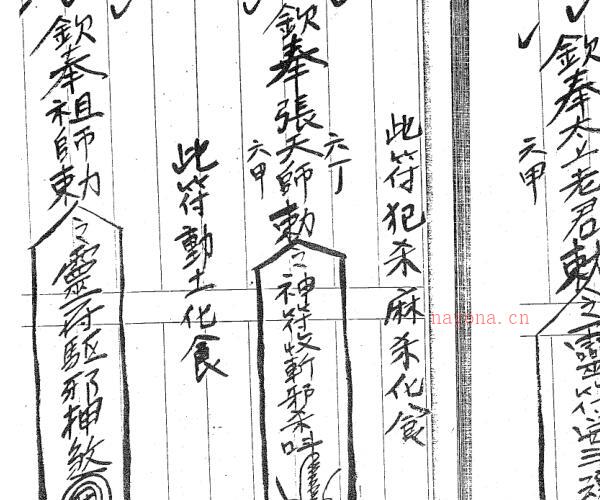 欽奉太上老君敕令靈符
六甲
此符犯杀麻杀化食
六丁
欽奉張天師敕令神符收斬邪杀吽
六甲
此符動土化食
欽奉祖師敕令靈符驅邪押煞
nayona.cn